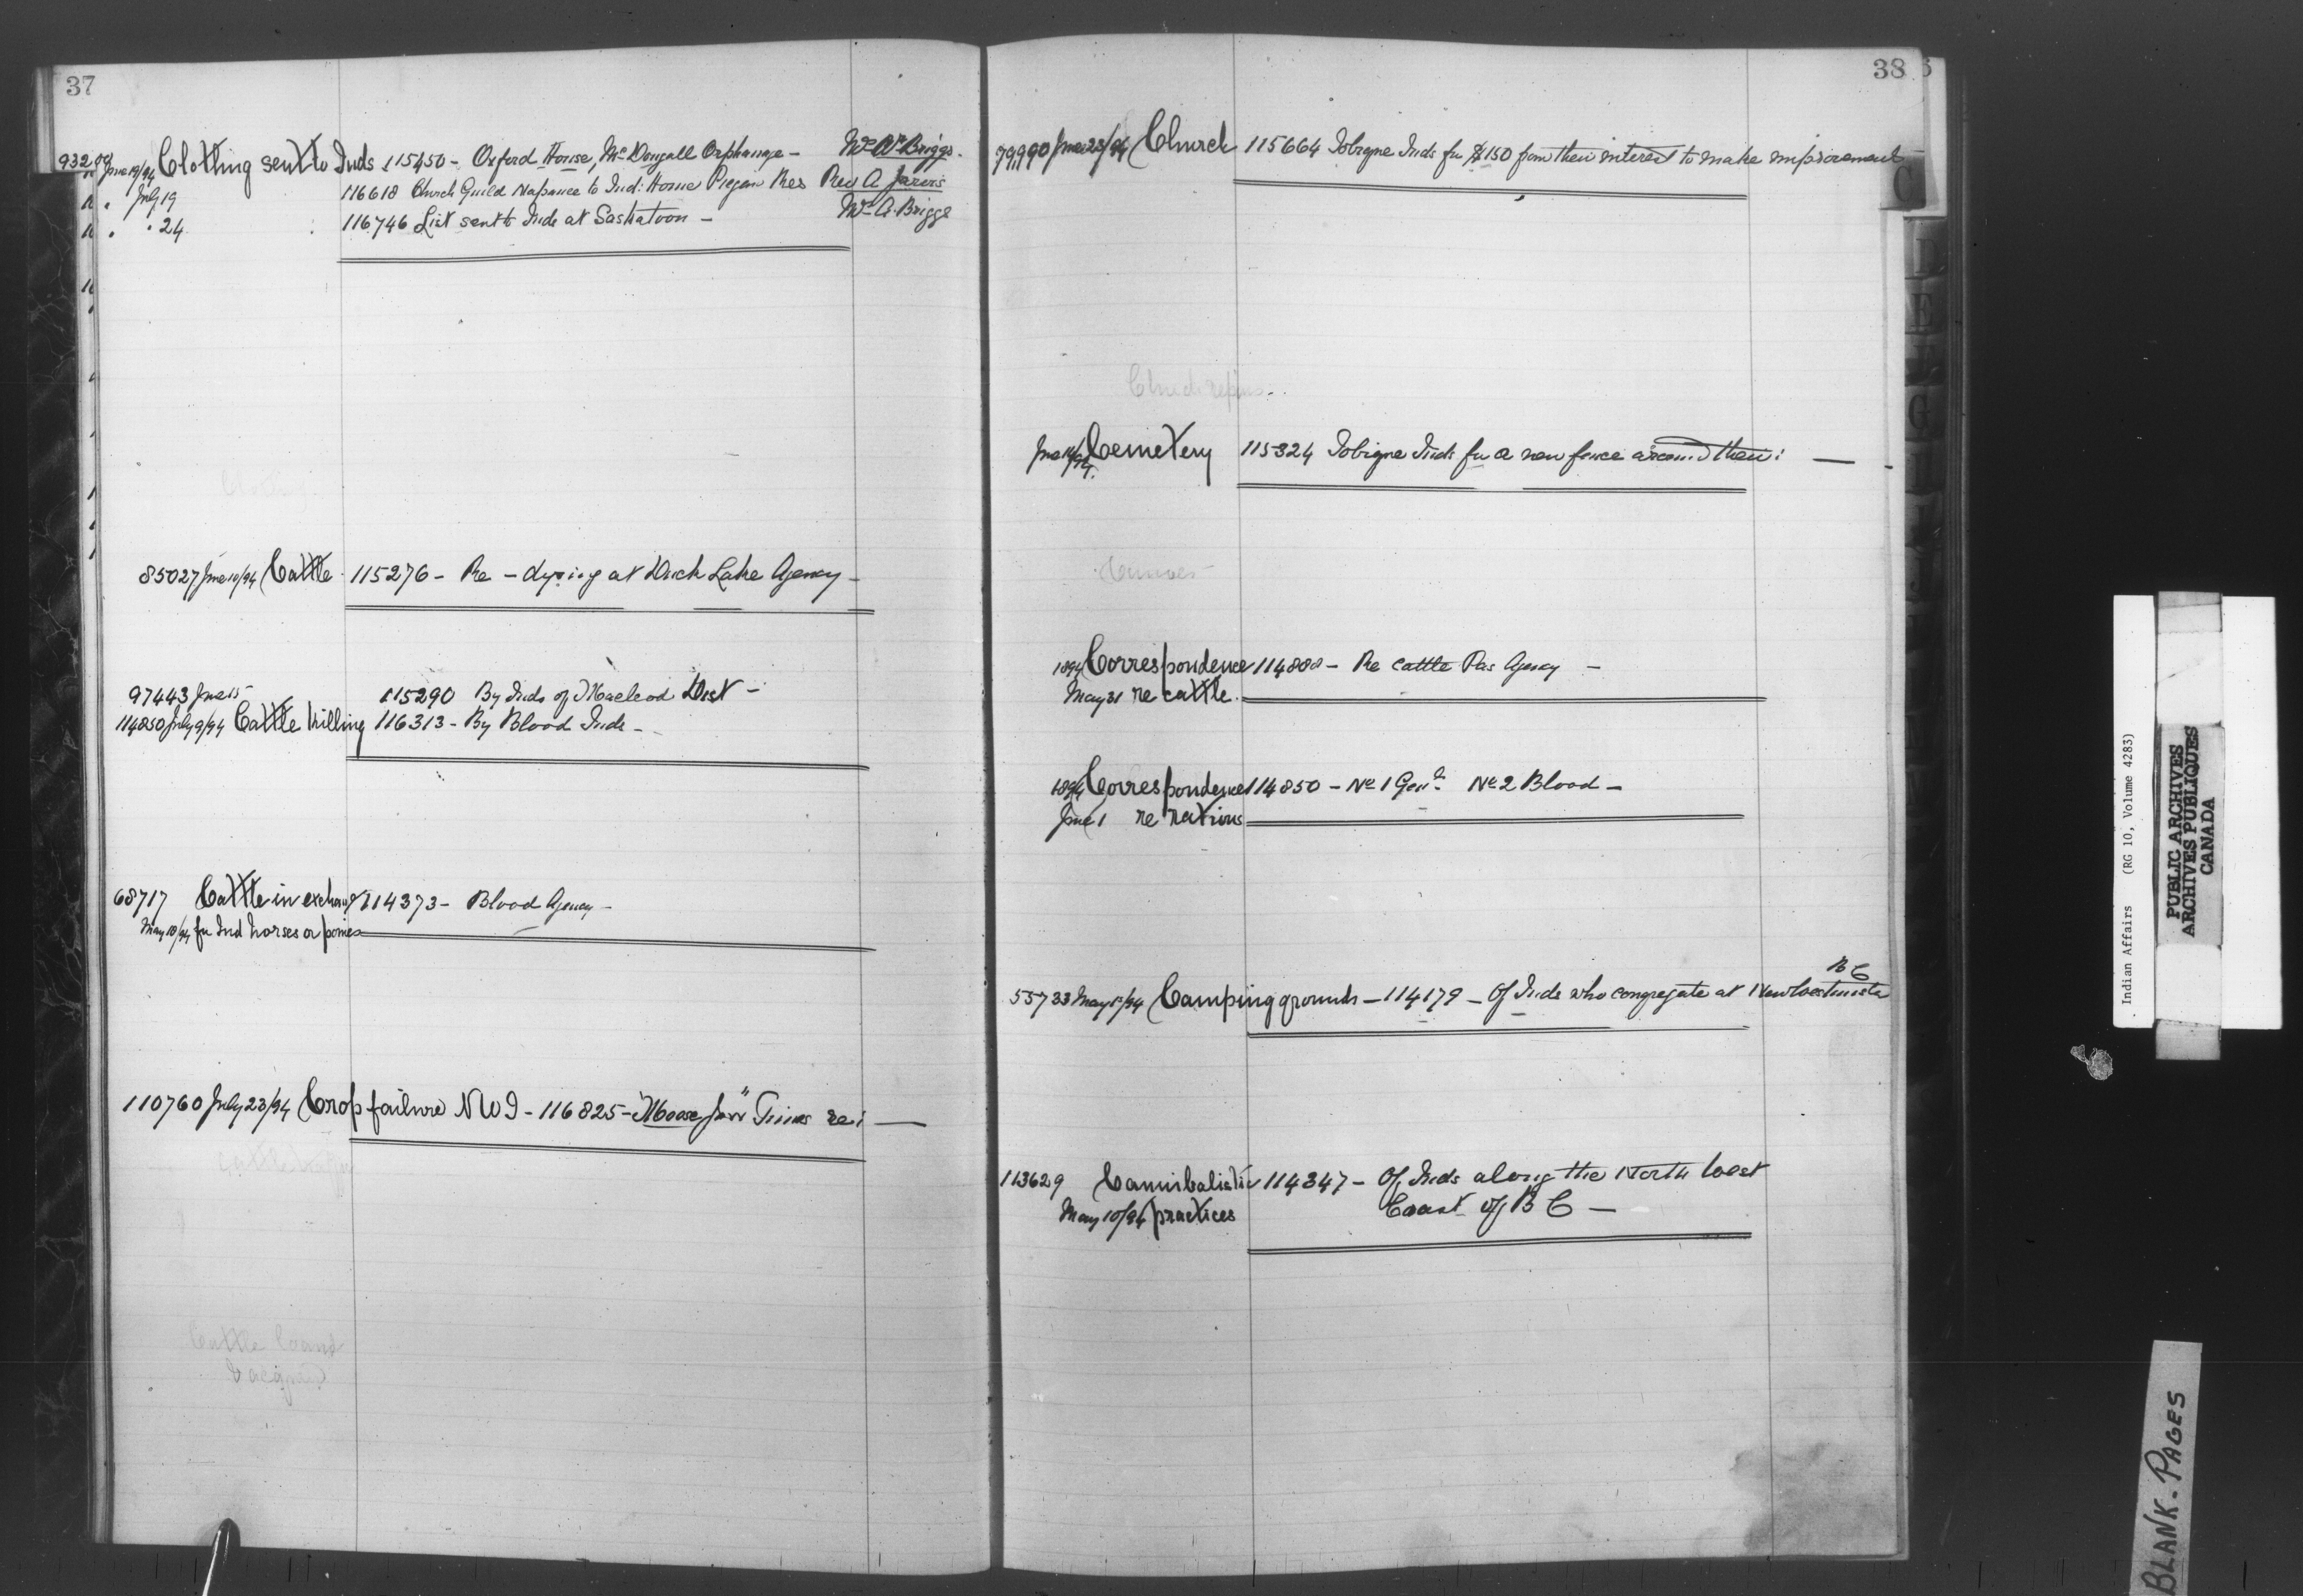 37
93209 June 19/94 Clothing sent to Inds 115450 - Oxford House, McDougall Orphanage - Wm Briggs.
" . July 19 116618 Church Guild Napanee to Ind: Home Piegan Res Rev A Jarvis
" . " 24 116746 List sent to Inds at Saskatoon - Briggs
85027 June 10/94 Cattle 115276 - Re - dying at Duck Lake Agency -
97443 June 15 115290 By Inds of Macleod Dist -
114850 July 9/94 Cattle killing 116313 - By Blood Inds -
68717 Cattle in exchange 114373 - Blood Agency -
May 10/94 for Ind horses or ponies
110760 July 23/94 Crop failure NWT - 116825 - "Moose Jaw" Times re: —
Cattle brand
38
79990 June 23/94 Church 115664 Tobique Inds for $150 from their interest to make improvement
Church repairs
June 94 Cemetery 115324 Tobique Inds for a new fence around their: —
1894 Correspondence 114888 - Re cattle Pas Agency -
May 31 re cattle.
1894 Correspondence 114850 - No 1 Gen'l. No 2 Blood -
June 1 re rations
B C
55733 May 5/94 Camping grounds - 114179 - Of Inds who congregate at New Westminster
113629 Cannibalistic 114347 - Of Inds along the North West
May 10/94 practices Coast of B C -
C
D
E
G
Indian Affairs (RG 10, Volume 4283)
PUBLIC ARCHIVES
ARCHIVES PUBLIQUES
CANADA
BLANK. PAGES